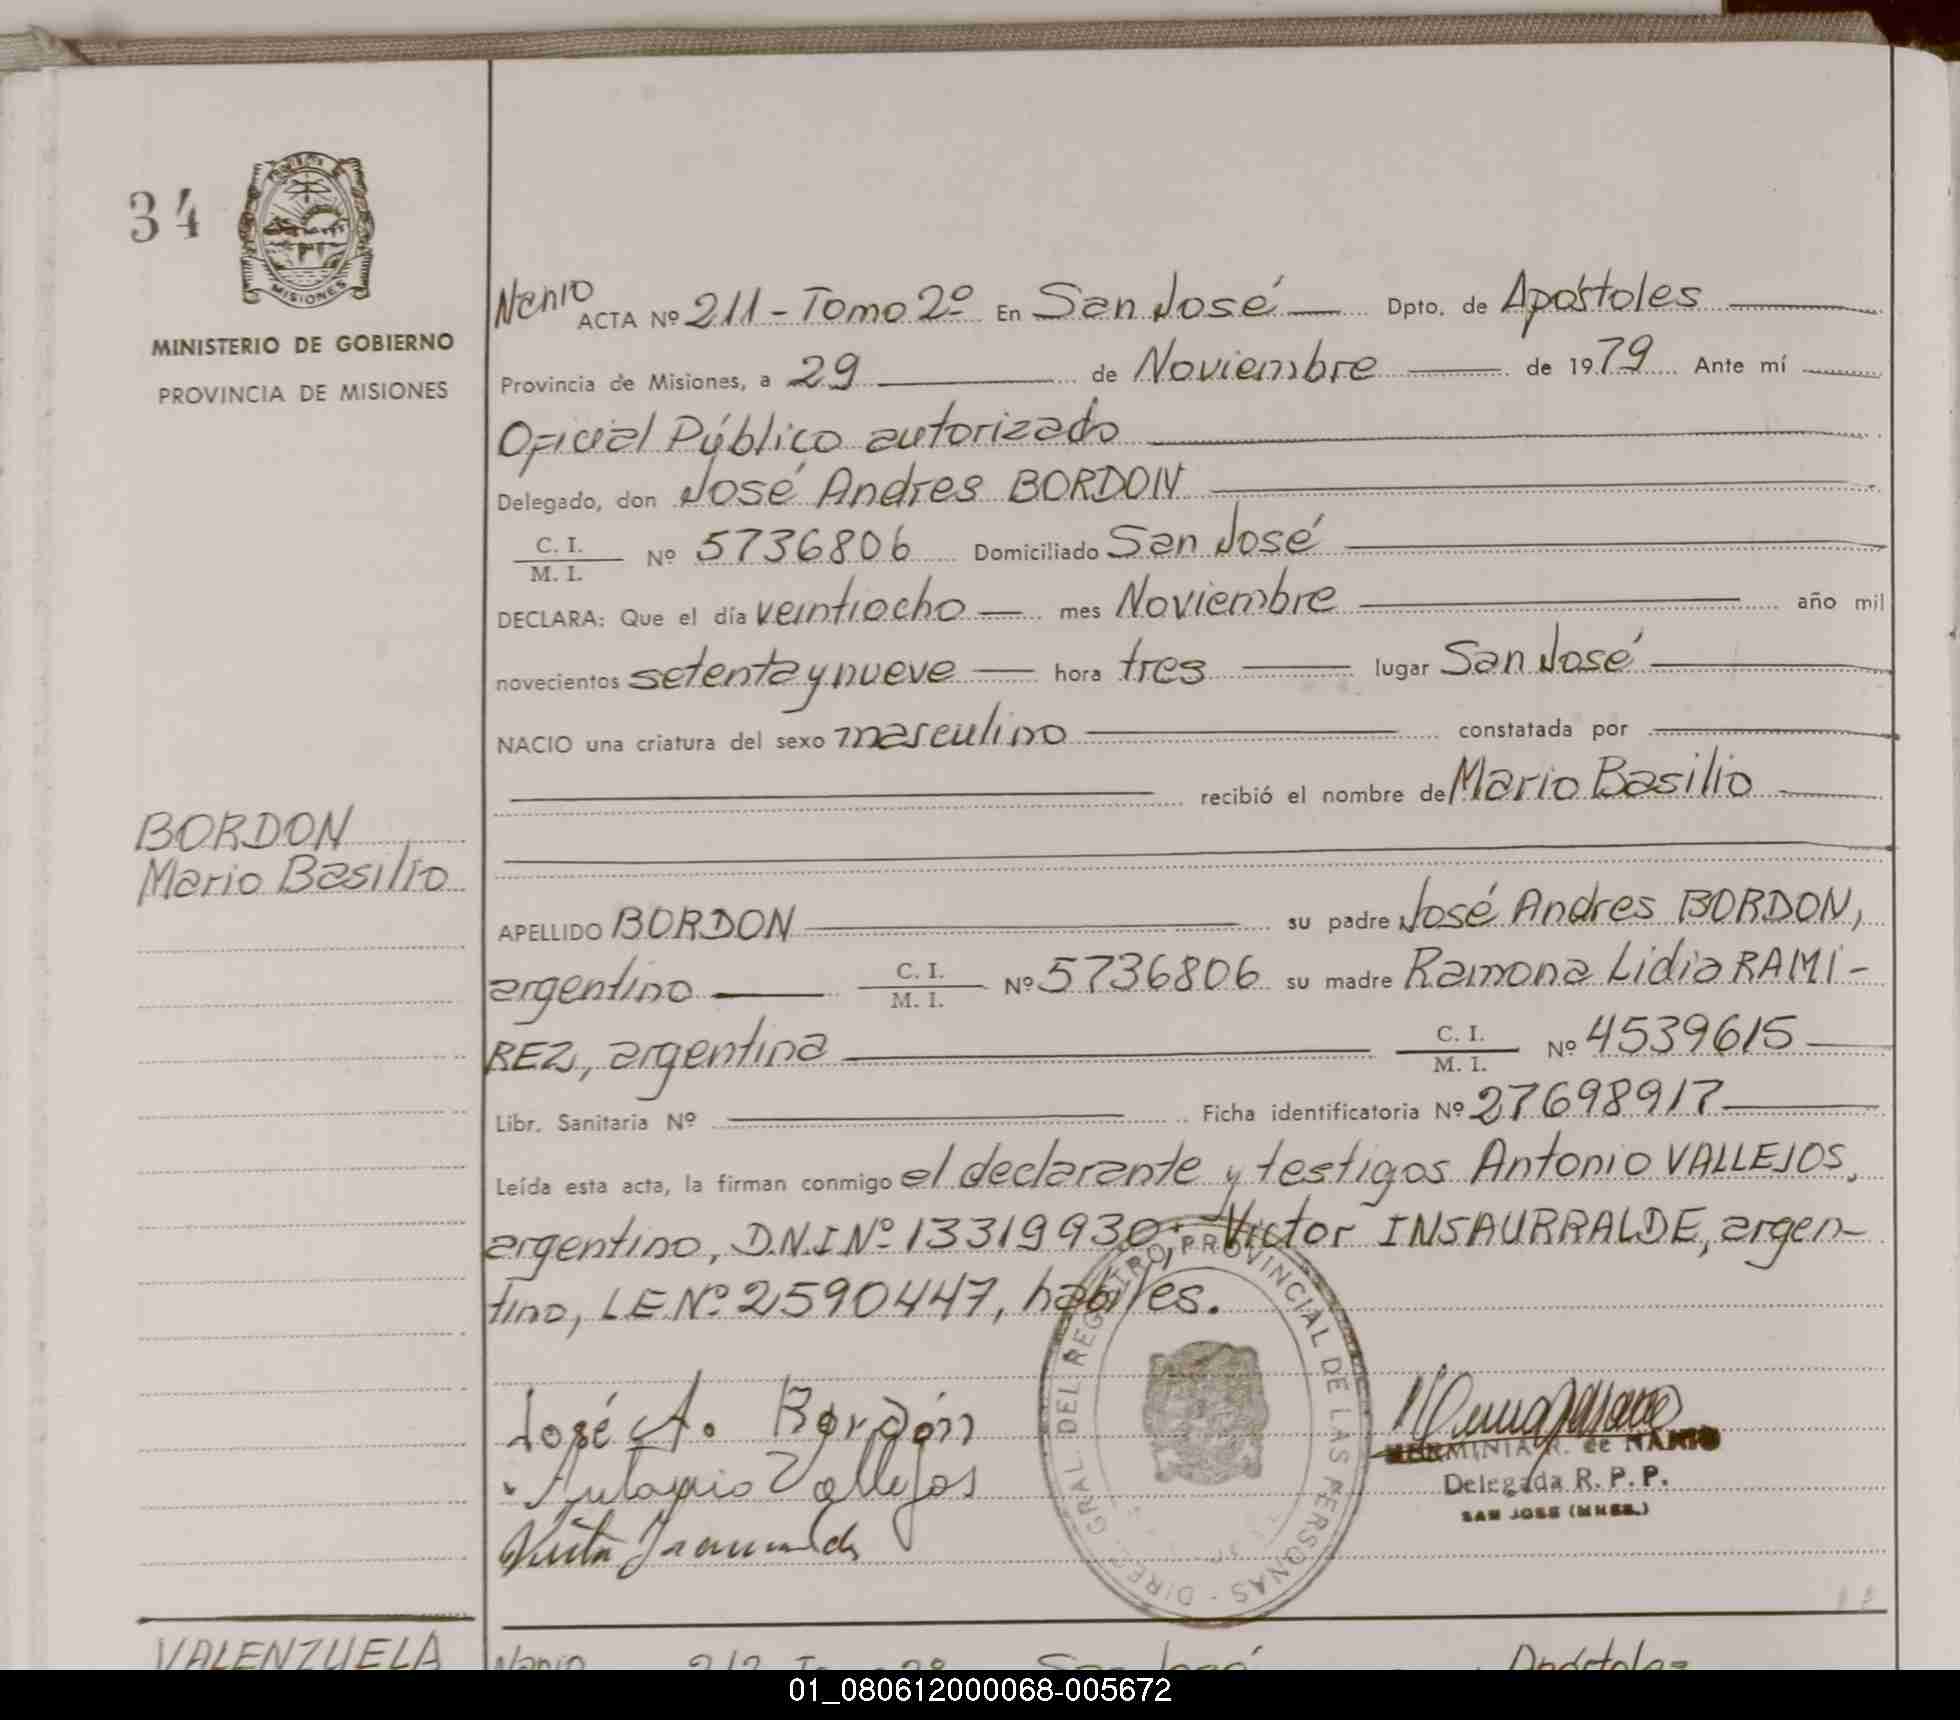 34
MISIONES
MINISTERIO DE GOBIERNO
PROVINCIA DE MISIONES
BORDON
Mario Basilio
Nanio
ACTA Nº 211 - Tomo 2º En San José Dpto. de Apóstoles
Provincia de Misiones, a 29 de Noviembre de 1979 Ante mí
Oficial Público autorizado
Delegado, don José Andres BORDON
C. I.
M. I. Nº 5736806 Domiciliado San José
DECLARA: Que el día veintiocho mes Noviembre año mil
novecientos setenta y nueve hora tres lugar San José
NACIO una criatura del sexo masculino constatada por
recibió el nombre de Mario Basilio
APELLIDO BORDON su padre José Andres BORDON,
argentino C. I.
M. I. Nº 5736806 su madre Ramona Lidia RAMI-
REZ, argentina C. I.
M. I. Nº 4539615
Libr. Sanitaria Nº Ficha identificatoria Nº 27698917
Leída esta acta, la firman conmigo el declarante y testigos Antonio VALLEJOS,
argentino, D.N.I Nº 13319930; Victor INSAURRALDE, argen-
tino, L.E.Nº 2590447, habiles.
DIREC. GRAL. DEL REGISTRO PROVINCIAL DE LAS PERSONAS
José A. Bordón
Antonio Vallejos
HERMINIA R. de NANIO
Delegada R. P. P.
SAN JOSE (MNES.)
VALENZUELA
Nanio 212 Tomo 2º San José Apóstoles
01_080612000068-005672